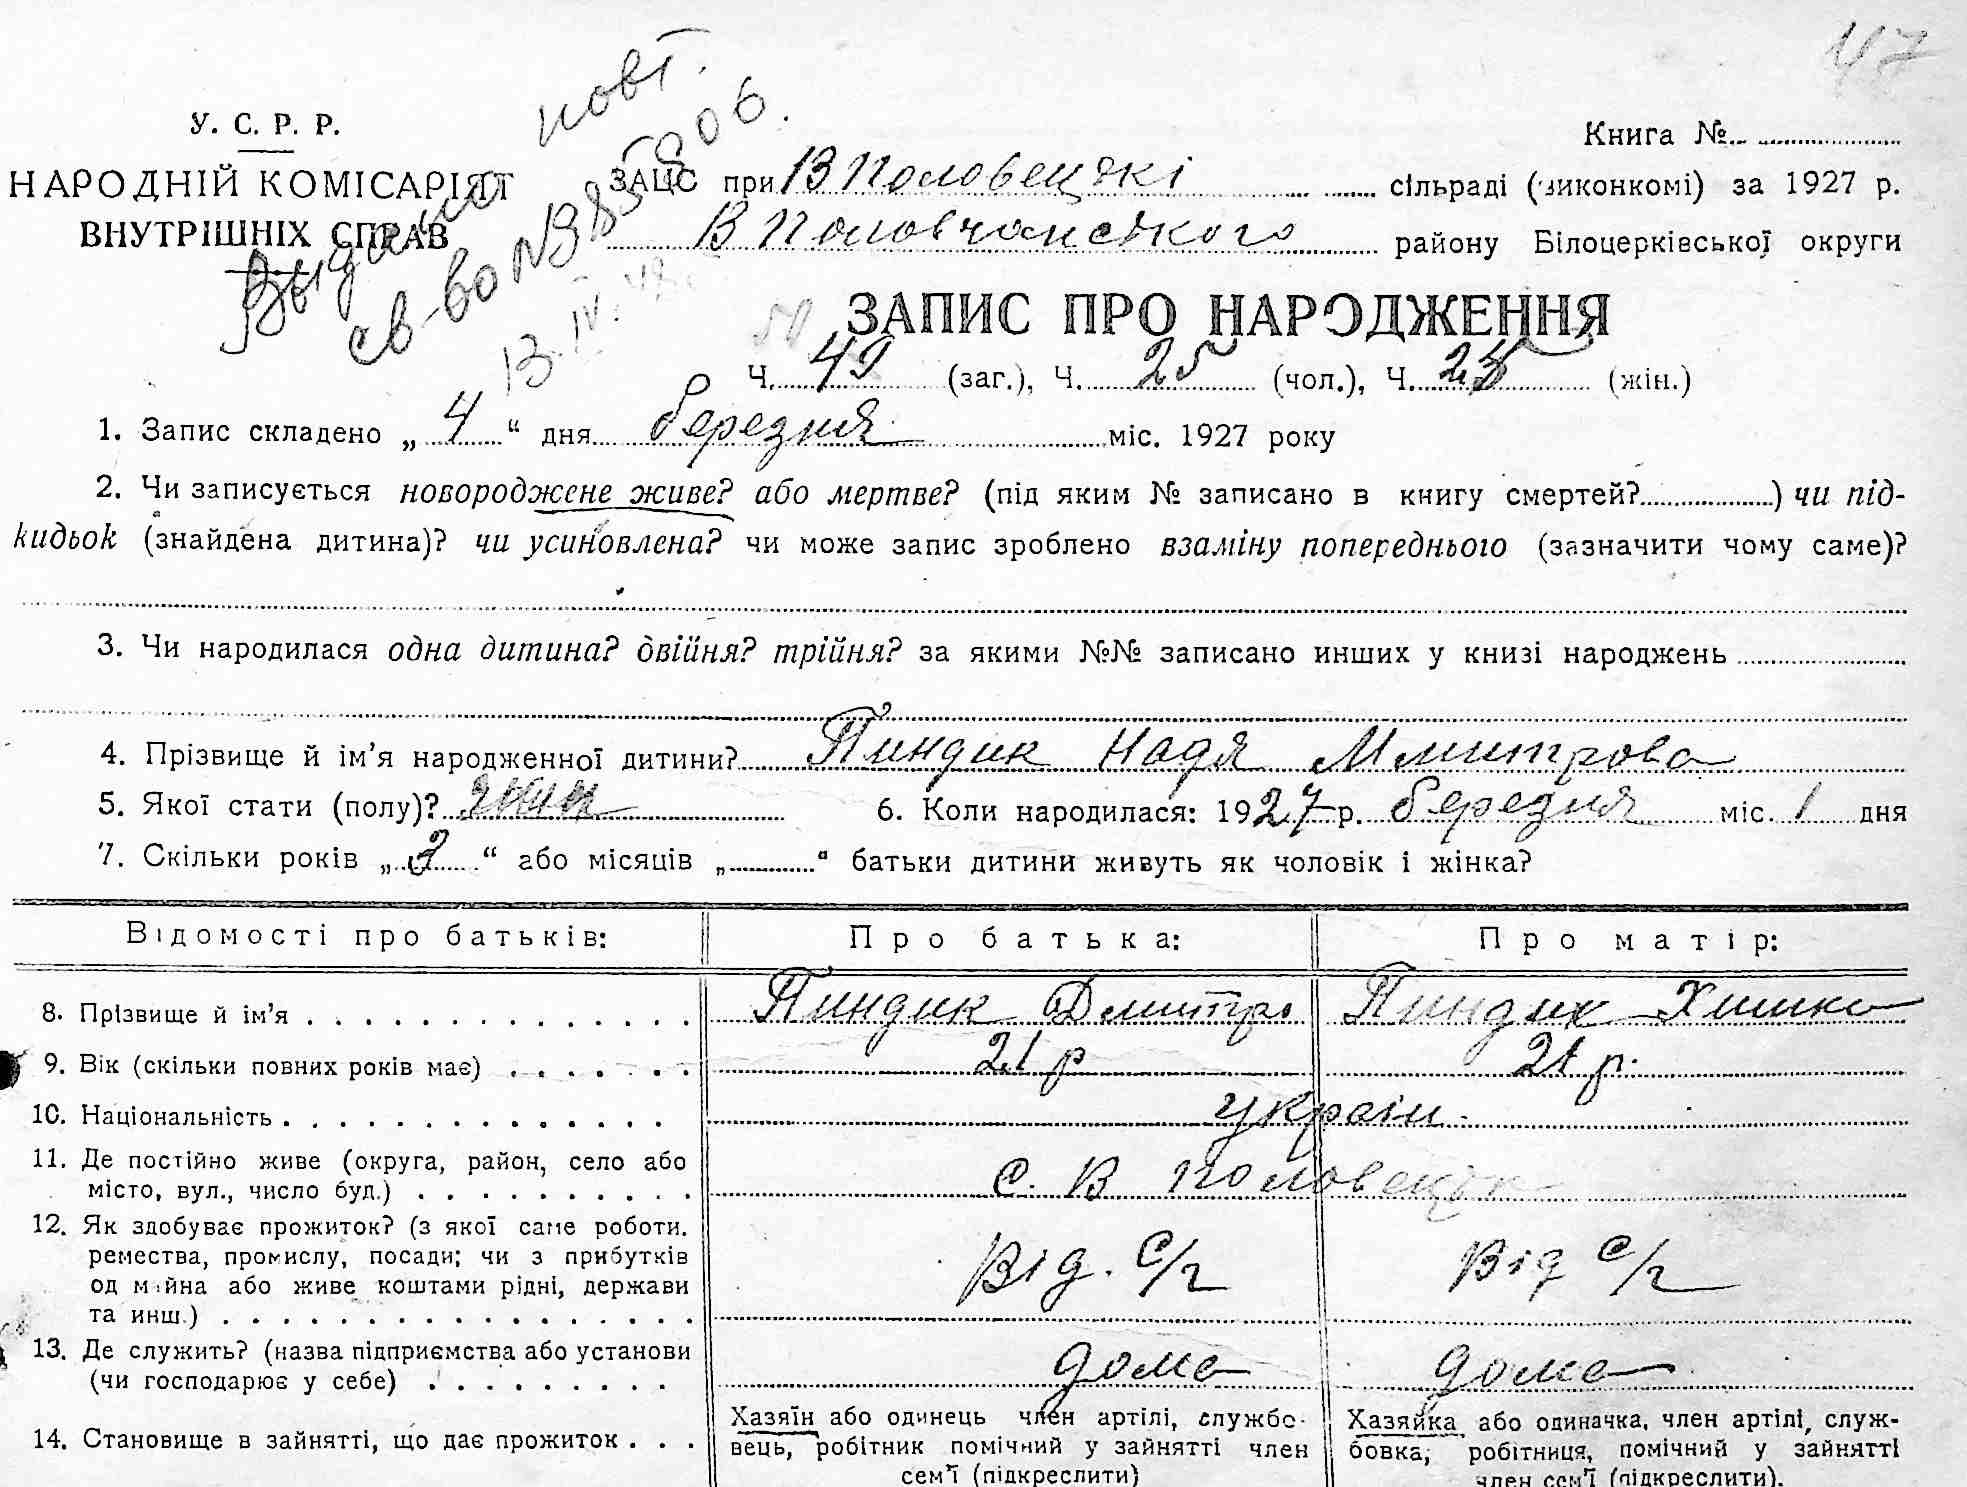 47
У. С. Р. Р.
НАРОДНІЙ КОМІСАРІЯТ
ВНУТРІШНІХ СПРАВ
Выдано повт.
св-во №
13.IV.
Книга №
ЗАЦС при В Половецькі сільраді (виконкомі) за 1927 р.
В Половчанського району Білоцерківської округи
ЗАПИС ПРО НАРОДЖЕННЯ
Ч. 49 (заг.), Ч. 25 (чол.), Ч. (жін.)
1. Запис складено „ 4 “ дня березня міс. 1927 року
2. Чи записується новороджене живе? або мертве? (під яким № записано в книгу смертей? ) чи під-
кидьок (знайдена дитина)? чи усиновлена? чи може запис зроблено взаміну попереднього (зазначити чому саме)?
3. Чи народилася одна дитина? двійня? трійня? за якими №№ записано инших у книзі народжень
4. Прізвище й ім’я народженної дитини? Пиндик Надя Дмитрова
5. Якої стати (полу)? жін 6. Коли народилася: 1927 р. березня міс. 1 дня
7. Скільки років „ 2 “ або місяців „ “ батьки дитини живуть як чоловік і жінка?
Відомості про батьків: Про батька: Про матір:
8. Прізвище й ім’я Пиндик Дмитро Пиндик
9. Вік (скільки повних років має) 21 р 21 р.
10. Національність україн.
11. Де постійно живе (округа, район, село або
місто, вул., число буд.) с. В Половецьк
12. Як здобуває прожиток? (з якої саме роботи.
ремества, промислу, посади; чи з прибутків
од майна або живе коштами рідні, держави
та инш.) Від. с/г Від с/г
13. Де служить? (назва підприємства або установи
(чи господарює у себе) дома дома
14. Становище в зайнятті, що дає прожиток
Хазяїн або одинець член артілі, службо-
вець, робітник помічний у зайнятті член
сем’ї (підкреслити)
Хазяйка або одиначка, член артілі, служ-
бовка, робітниця, помічний у зайнятті
член сем’ї (підкреслити).